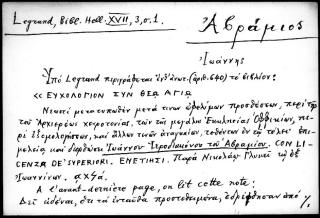 Legrand, Bibl. Hell. XVII, 3, σ. 1.
Ἀβράμιος
Ἰωάννης
Ὑπὸ Legrand περιγράφεται (ἀριθ. 640) τὸ βιβλίον:
«ΕΥΧΟΛΟΓΙΟΝ ΣΥΝ ΘΕΩ ΑΓΙΩ
Νεωστὶ μετατυπωθὲν μετά τινων ὠφελίμων προσθέσεων, περὶ τῆς
τοῦ Ἀρχιερέως χειροτονίας, τῶν τῆς μεγάλης Ἐκκλησίας Ὀφφικίων, πε
ρὶ ἐξομολογήσεως, καὶ ἄλλων τινῶν ἀναγκαίων, τεθέντων ἐν τῷ τέλει· ἐπι
μελείᾳ καὶ διορθώσει Ἰωάννου Ἱεροδιακόνου τοῦ Ἀβραμίου. CON LI-
CENZA DE' SVPERIORI. ΕΝΕΤΙΗΣΙ. Παρὰ Νικολάῳ Γλυκεῖ τῷ ἐξ
Ἰωαννίνων. αχϟα.
A l'avant-dernière page, on lit cette note:
Δεῖ εἰδέναι, ὅτι τὰ ἐνταῦθα προστεθειμένα, ἐδιορθώθησαν ἀπὸ